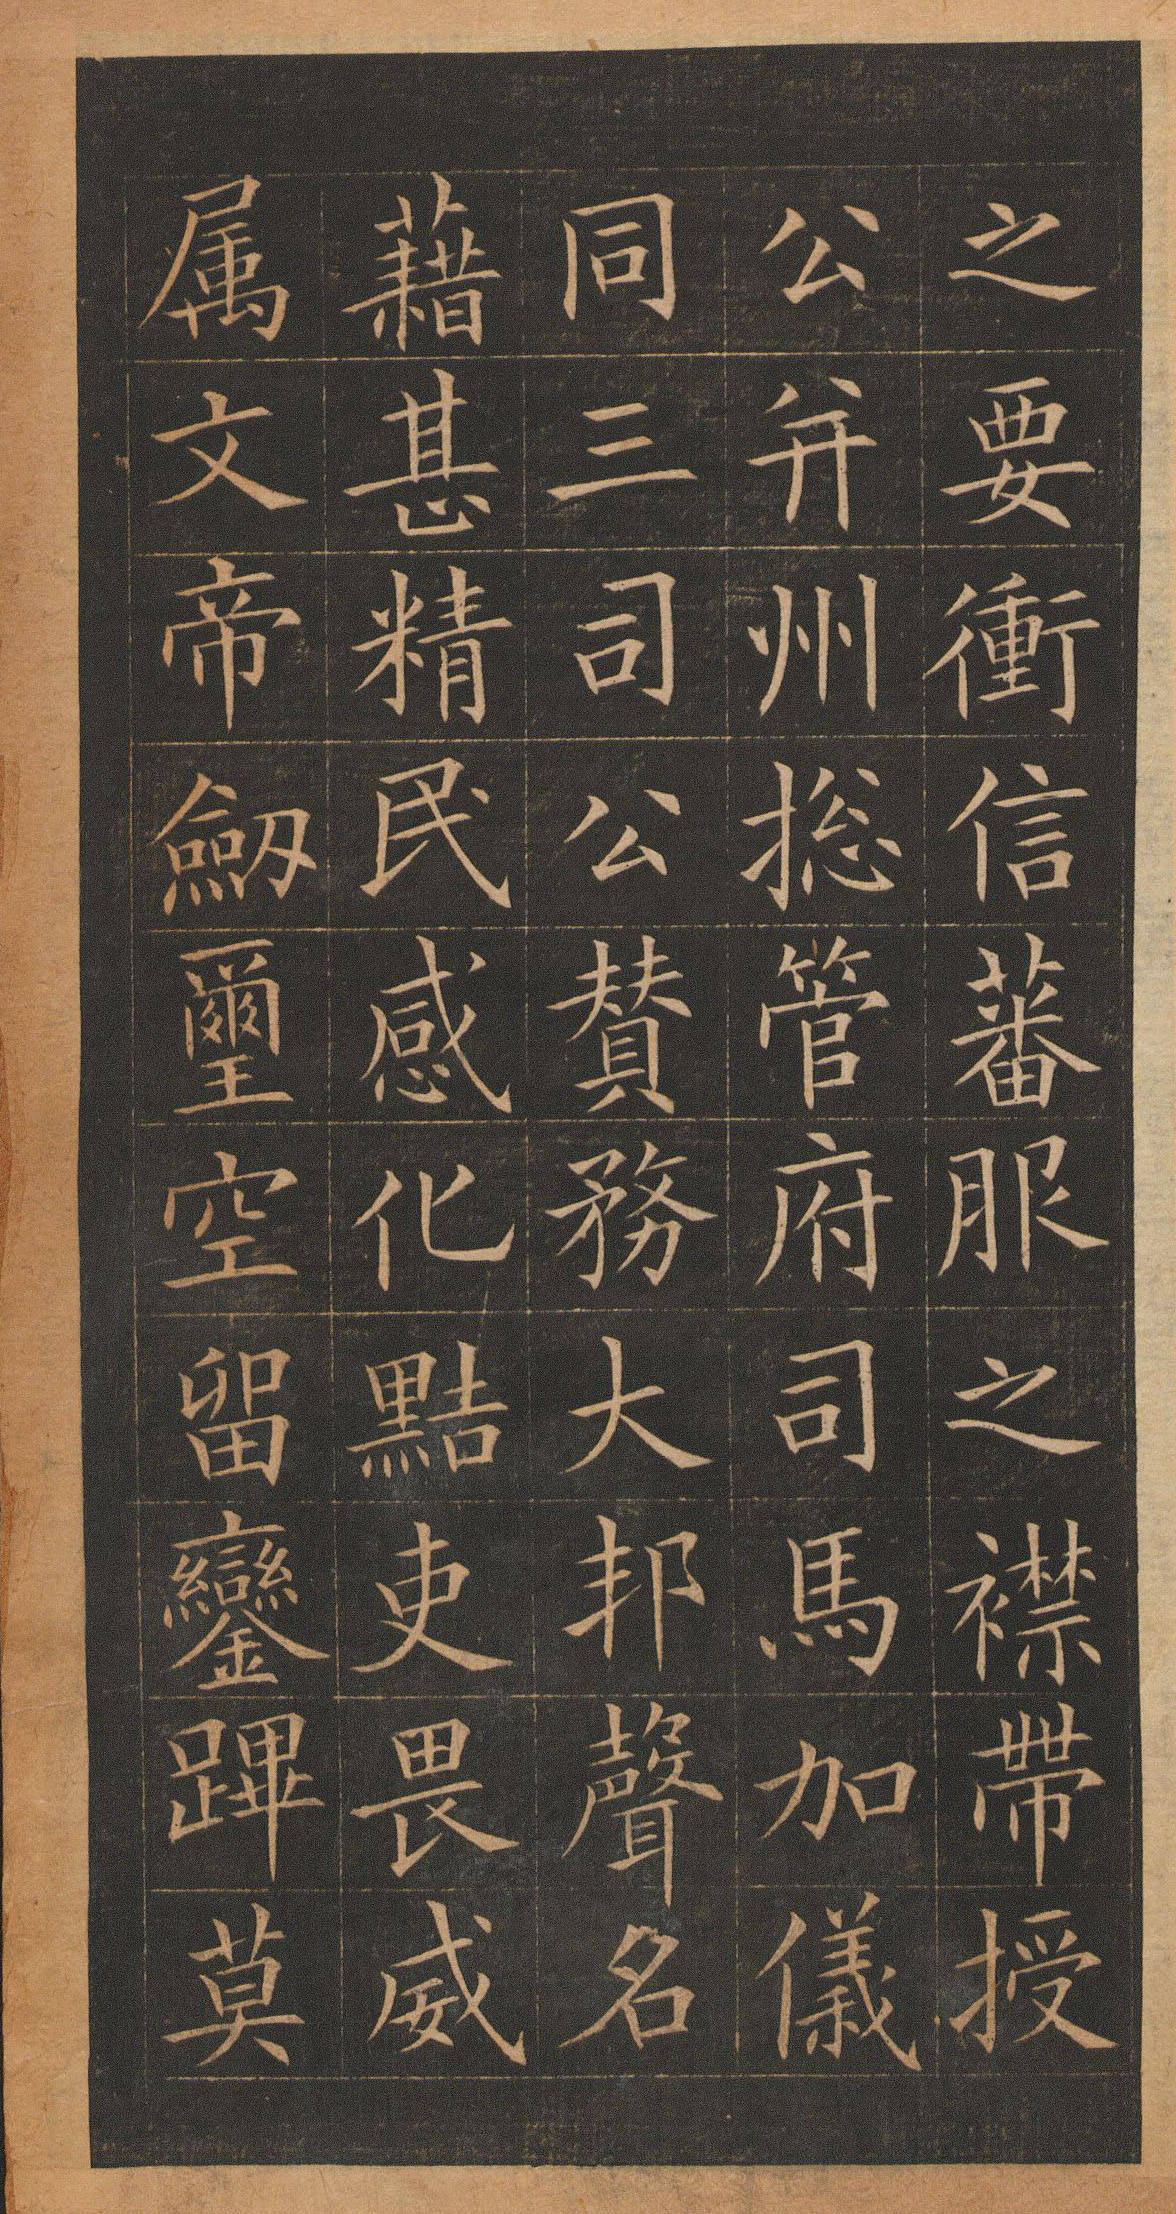 之要衝信蕃服之襟帶授
公并州捴管府司馬加儀
同三司公賛務大邦聲名
藉甚精民感化黠吏畏威
属文帝劒璽空留鑾蹕莫